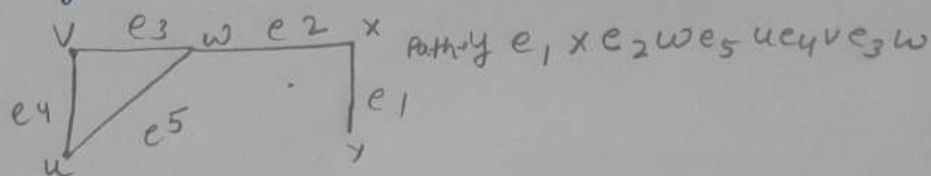 V e3 w e2 x Path→y e1 x e2 w e5 u e4 v e3 w
e4 e5 e1
u y